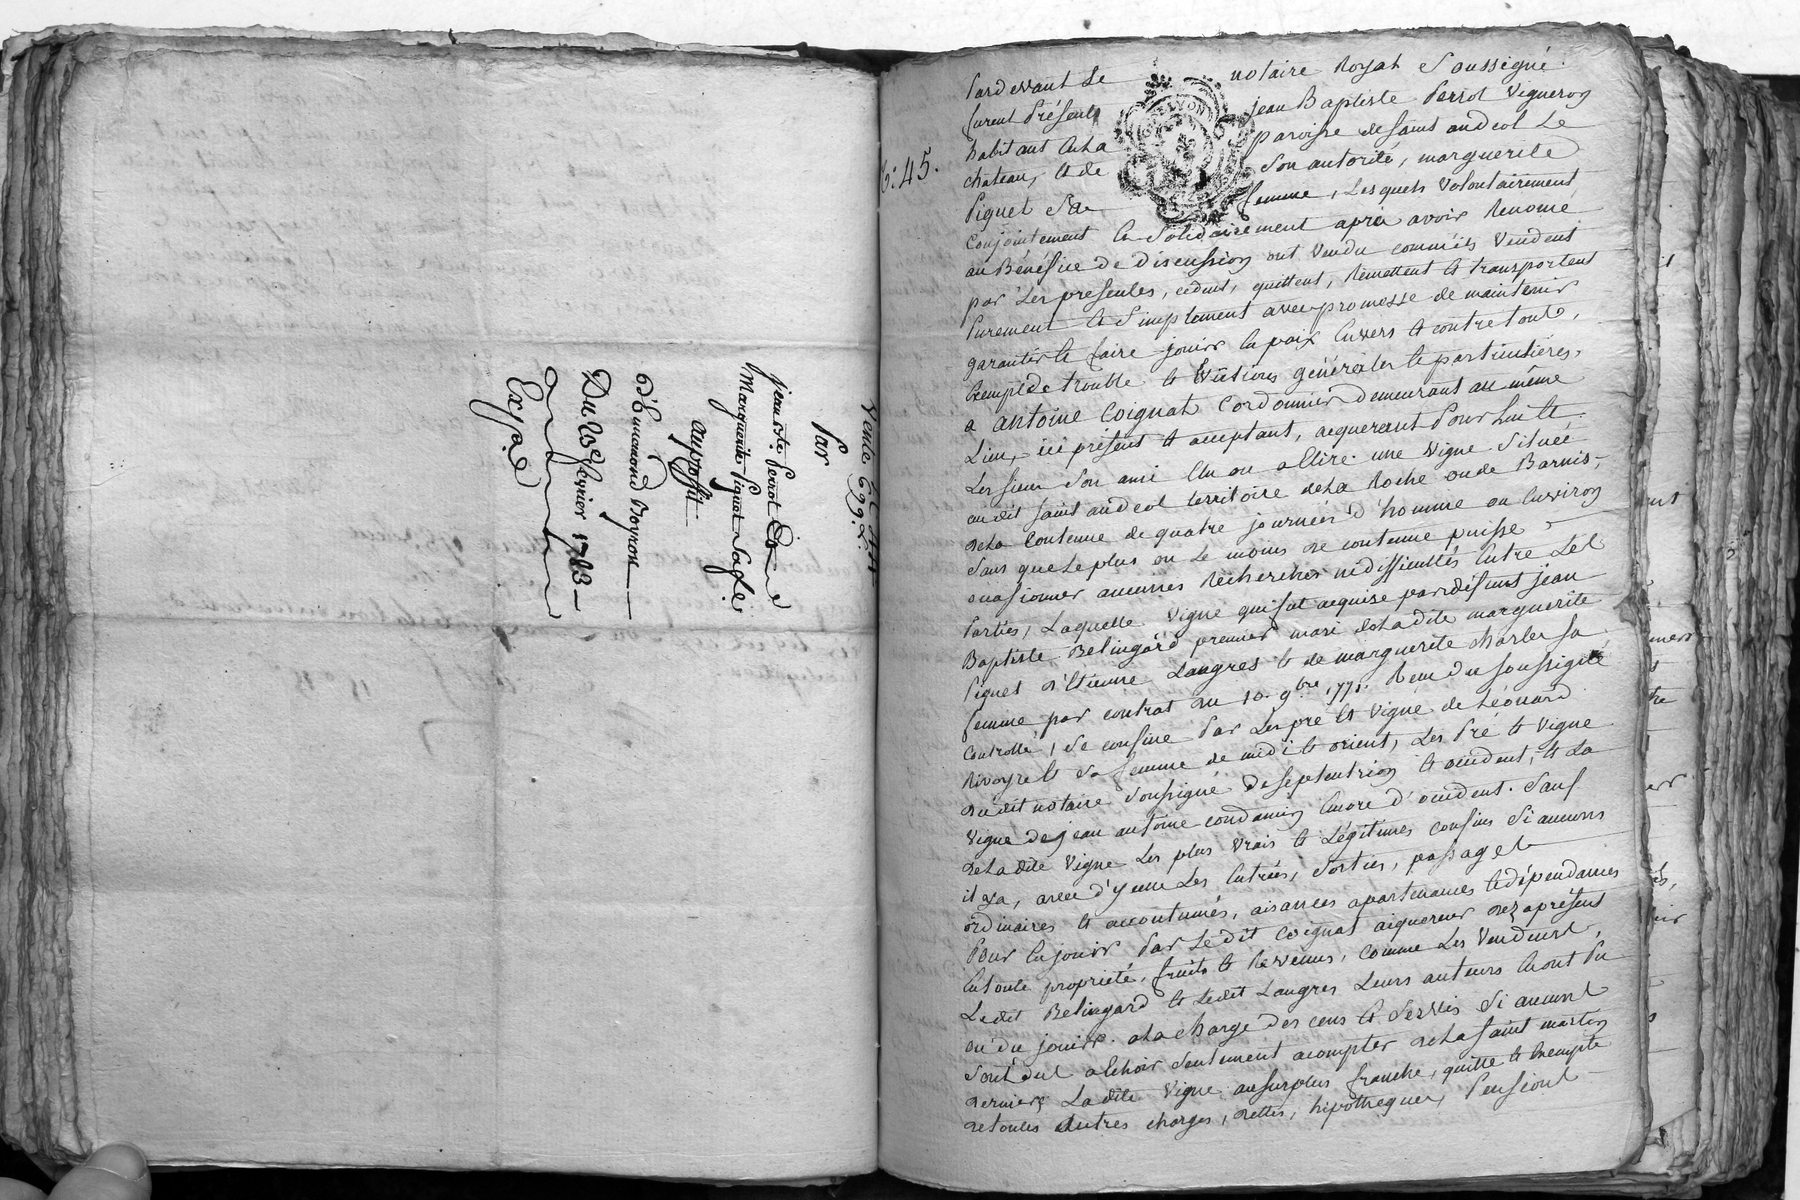 Vente 699 L
Par
jean bte Perrot Et
Marguerite Piguet Sa fe
au proffit
d'Ennemond Boyron
Du 20e fevrier 1783
Expé
6: 45.
LYON
Pardevant Le notaire Royal Soussigné
furent Présents jean Baptiste Perrot Vigneron
habitant En La paroisse de saint andeol Le
chateau, Et de Son autorité, marguerite
Piguet Sa femme, Lesquels Volontairement
Conjointement Et Solidairement apres avoir Renoncé
au Bénéfice de Discussion ont Vendu comm'ils Vendent
par Les presentes, cedent, quittent, Remettent Et transportent
Purement Et Simplement avec promesse de maintenir
garantir Et faire jouir En paix Envers Et contre tout,
Exempt de trouble Et Evictions générales Et particulieres,
a antoine Coignat Cordonnier Demeurant au même
Lieu, ici présent Et acceptant, acquereant Pour Lui Et
Les siens Son ami Elu ou a Elire. une Vigne Située
audit saint andeol territoire de La Roche ou de Barnis,
de La Contenue de quatre journées d'homme ou Environ
Sans que Le plus ou Le moins de contenue puisse
occasionner aucunes Recherches ni difficultés Entre Les
Parties, Laquelle Vigne qui fut acquise par défunt jean
Baptiste Belingard premier mari de La dite marguerite
Piguet d'Etienne Langres Et de marguerite charles sa
femme par contrat du 10. 9bre 1771. Recu du soussigné
Controllé, Se confine Par Les pré Et Vigne de Léonard
Rivoyre Et Sa femme de midi Et orient, Les Pré Et Vigne
du dit notaire Soussigné de Septentrion Et occident, Et La
Vigne de jean antoine condamin Encore d'occident. Sauf
de La dite Vigne Les plus Vrais Et Légitimes confins Si aucuns
il y a, avec d'y celle Les Entrées, Sorties, passages
ordinaires Et accoutumés, aisances apartenances Et dépendances
Pour En jouir Par Ledit Coignat aiquereur dez aprésent
En toute propriété, fruits Et Revenus, Comme Les Vendeurs,
Ledit Belingard Et Ledit Langres Leurs auteurs En ont Pu
ou du jouir. a La charge des cens Et Servis Si aucuns
Sont dus a Echoir Seulement acompter de La saint martin
derniere La dite Vigne au surplus franche, quitte Et Exempte
de toutes autres charges, dettes, hipotheques, Pensions